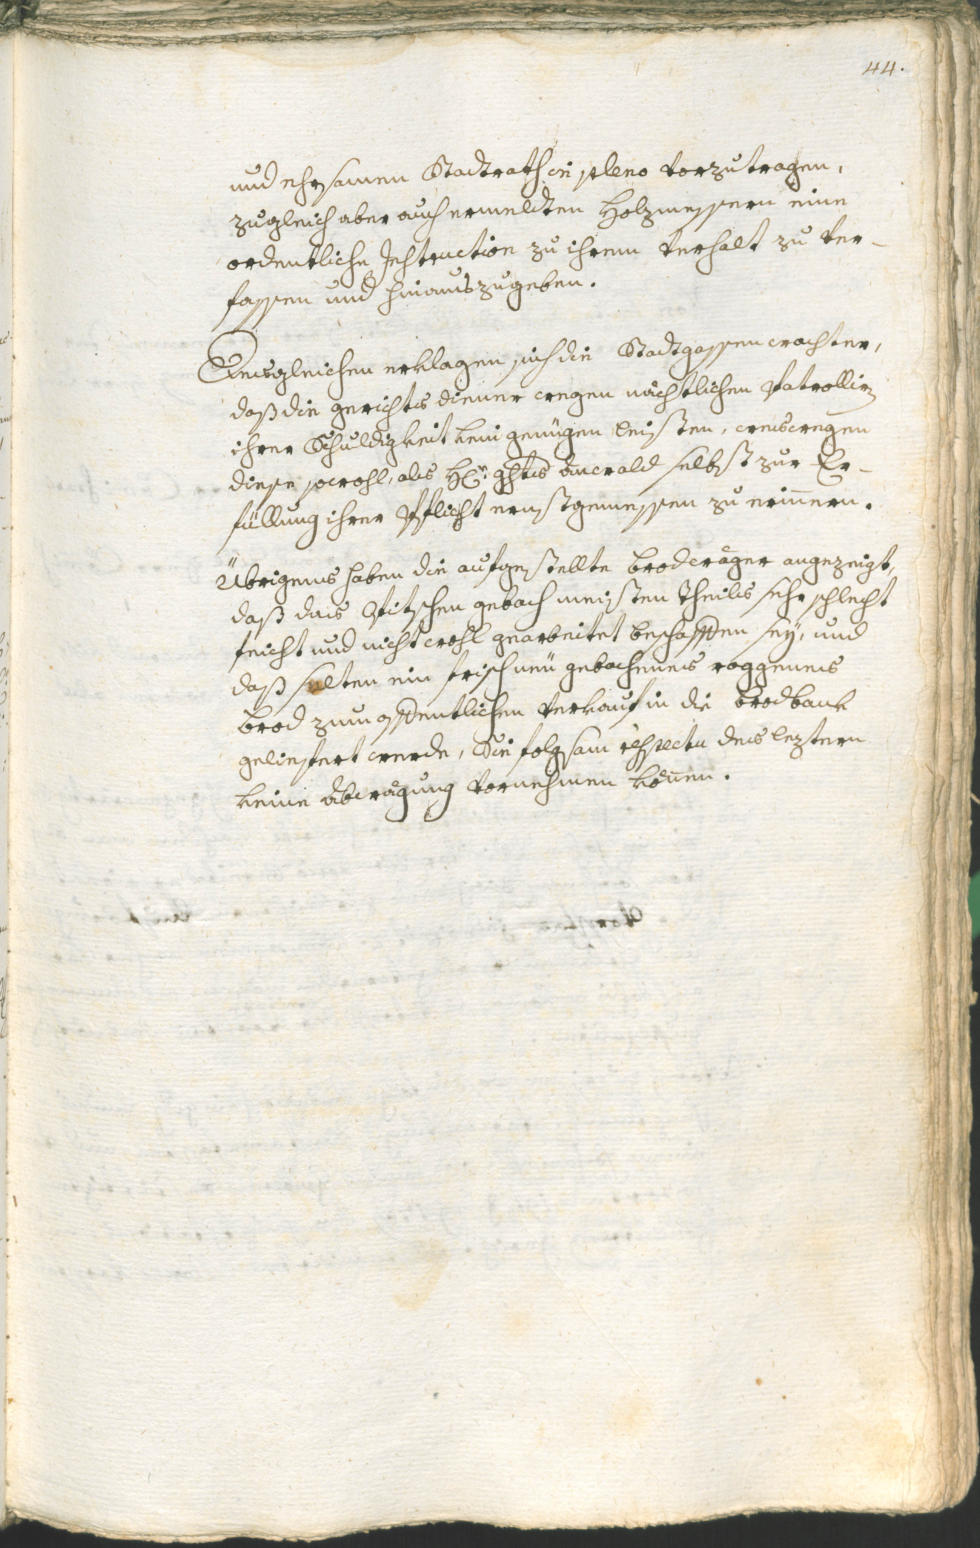 44.
und ehrsamen Stadtrath in pleno vorzutragen,
zugleich aber auch ermeldten Holzmessern eine
ordentliche Instruction zu ihrem Verhalt zu ver-
fassen und hinauszugeben.
Desgleichen erklagen sich die Stadtgassenwachter,
daß die gerichts diener wegen nächtlichen Patrollirn
ihrer Schuldigkeit kein genügen leisten, weswegen
diese sowohl, als H: ghts anwald selbst zur Er-
füllung ihrer Pflicht ernstgemessen zu erinnern.
Übrigens haben die aufgestellte brodwäger angezeigt,
daß das gebach meisten theils sehr schlecht
feicht und nicht wohl gearbeitet beschaffen seÿ, und
daß selten ein frisch neü gebachenes roggenes
brod zum offentlichen verkauf in die brodbank
geliefert werde, Sie folgsam respectu des leztern
keine abwägung vornehmen können.